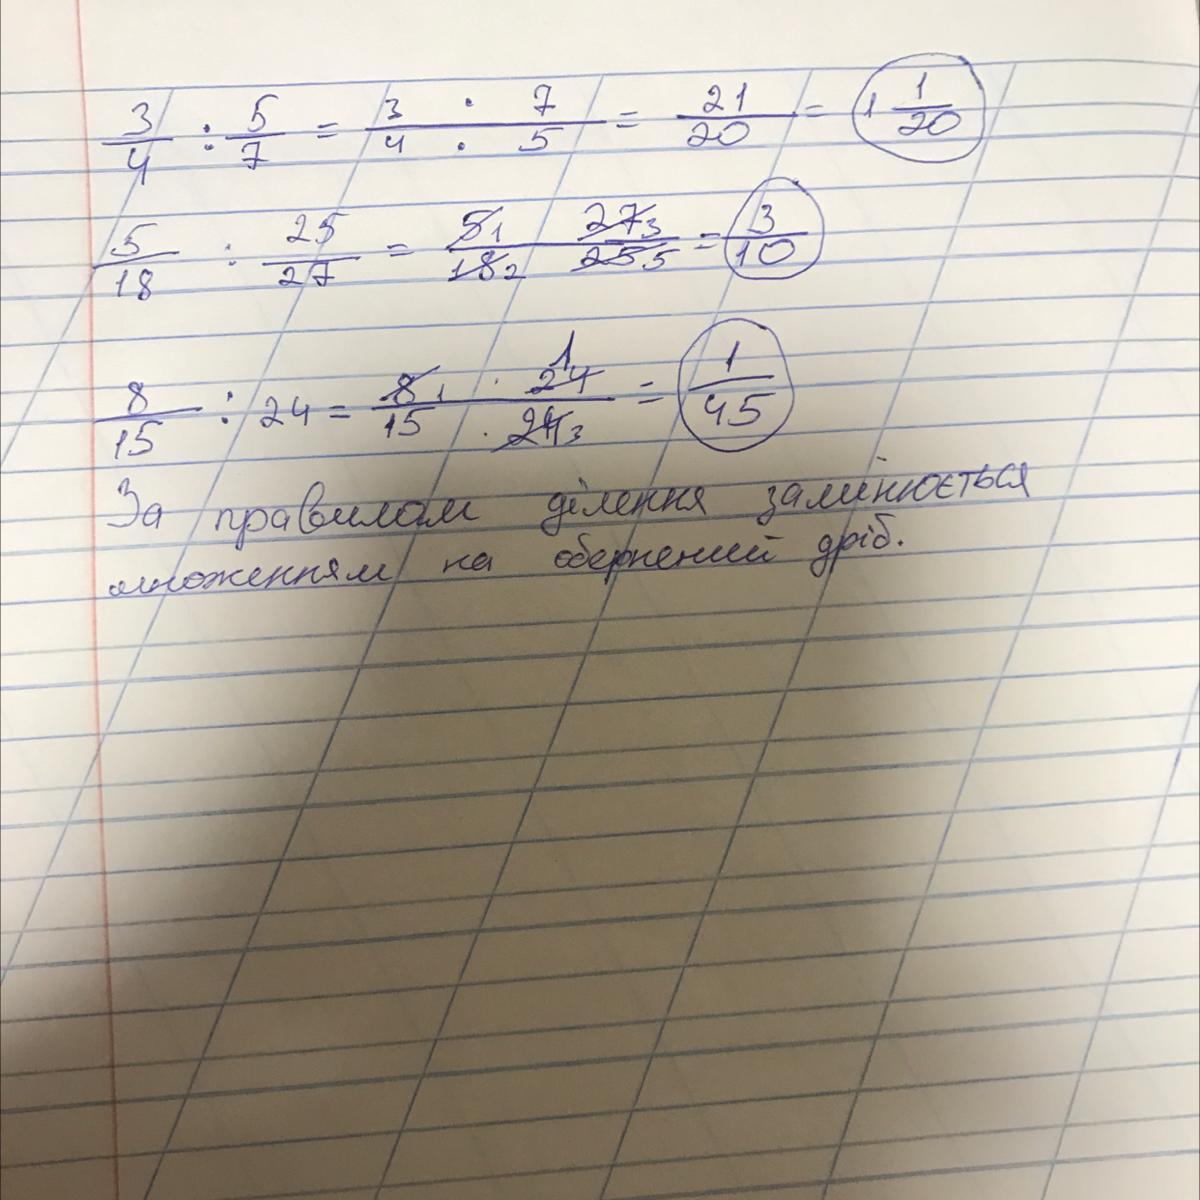 3/4 : 5/7 = 3 · 7 / 4 · 5 = 21/20 = 1 1/20
5/18 : 25/27 = 5 1 27 3 / 18 2 25 5 = 3/10
8/15 : 24 = 8 1 · 24 1 / 15 · 24 3 = 1/45
За правилом ділення замінюється
множенням на обернений дріб.